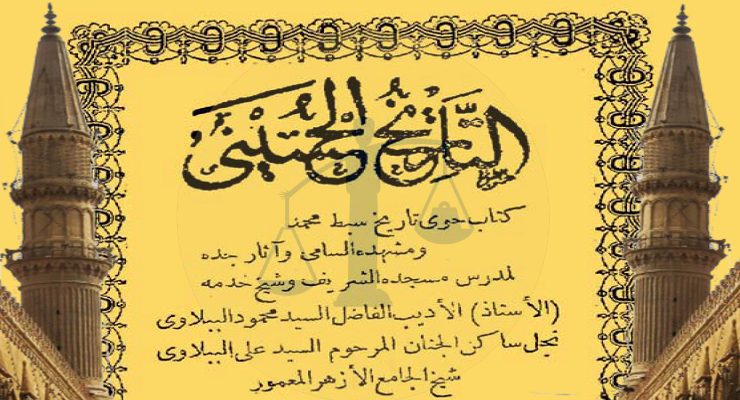 التاريخ الحسيني
كتاب حوى تاريخ سبط محمد
ومشهده السامى وآثار جده
لمدرس مسجده الشريف وشيخ خدمه
(الأستاذ) الأديب الفاضل السيد محمود الببلاوى
نجل ساكن الجنان المرحوم السيد على الببلاوى
شيخ الجامع الأزهر المعمور